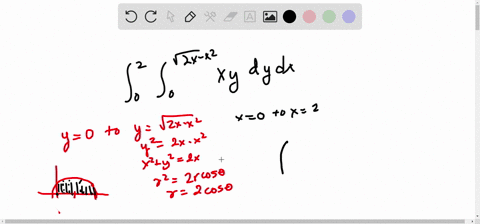 ∫₀² ∫₀^√(2x-x²) xy dy dx
x=0 to x=2
y=0 to y=√(2x-x²)
y²=2x-x²
x²+y²=2x
r²=2rcosθ
r=2cosθ